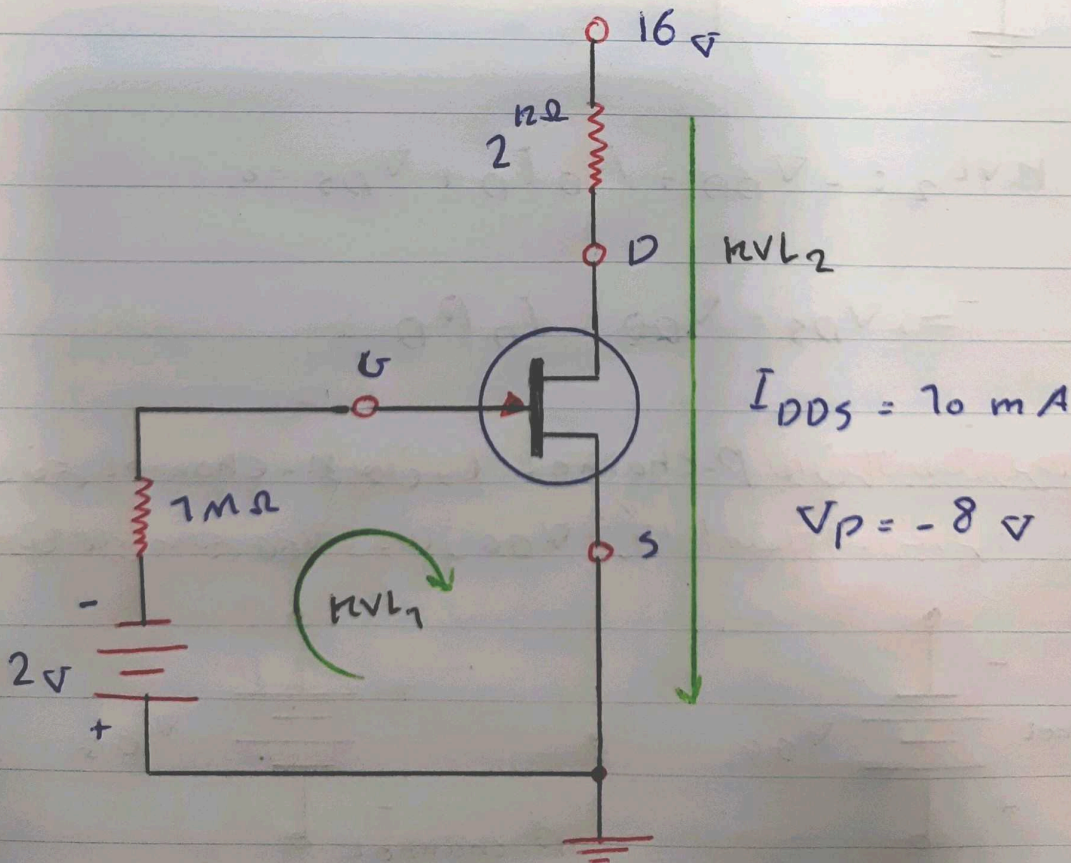 16 V
2 kΩ
D
KVL2
G
IDDS = 10 mA
1MΩ
VP = - 8 V
S
KVL1
-
2V
+